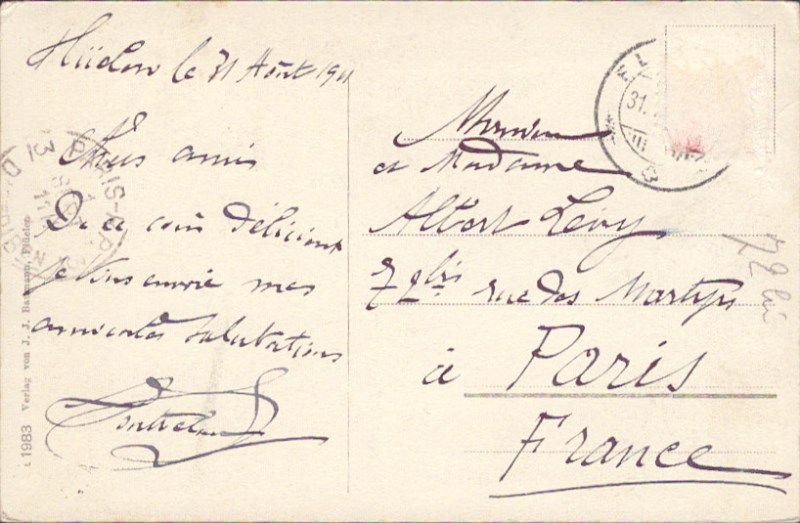 Flüelen le 31 Août 1911
Chers amis
De ce coin délicieux
je vous envoie mes
amicales salutations
Monsieur
et Madame
Albert Lévy
72bis rue des Martyrs
à Paris
France
72 bis
1983 Verlag von J. J. Flüelen
PARIS
31.